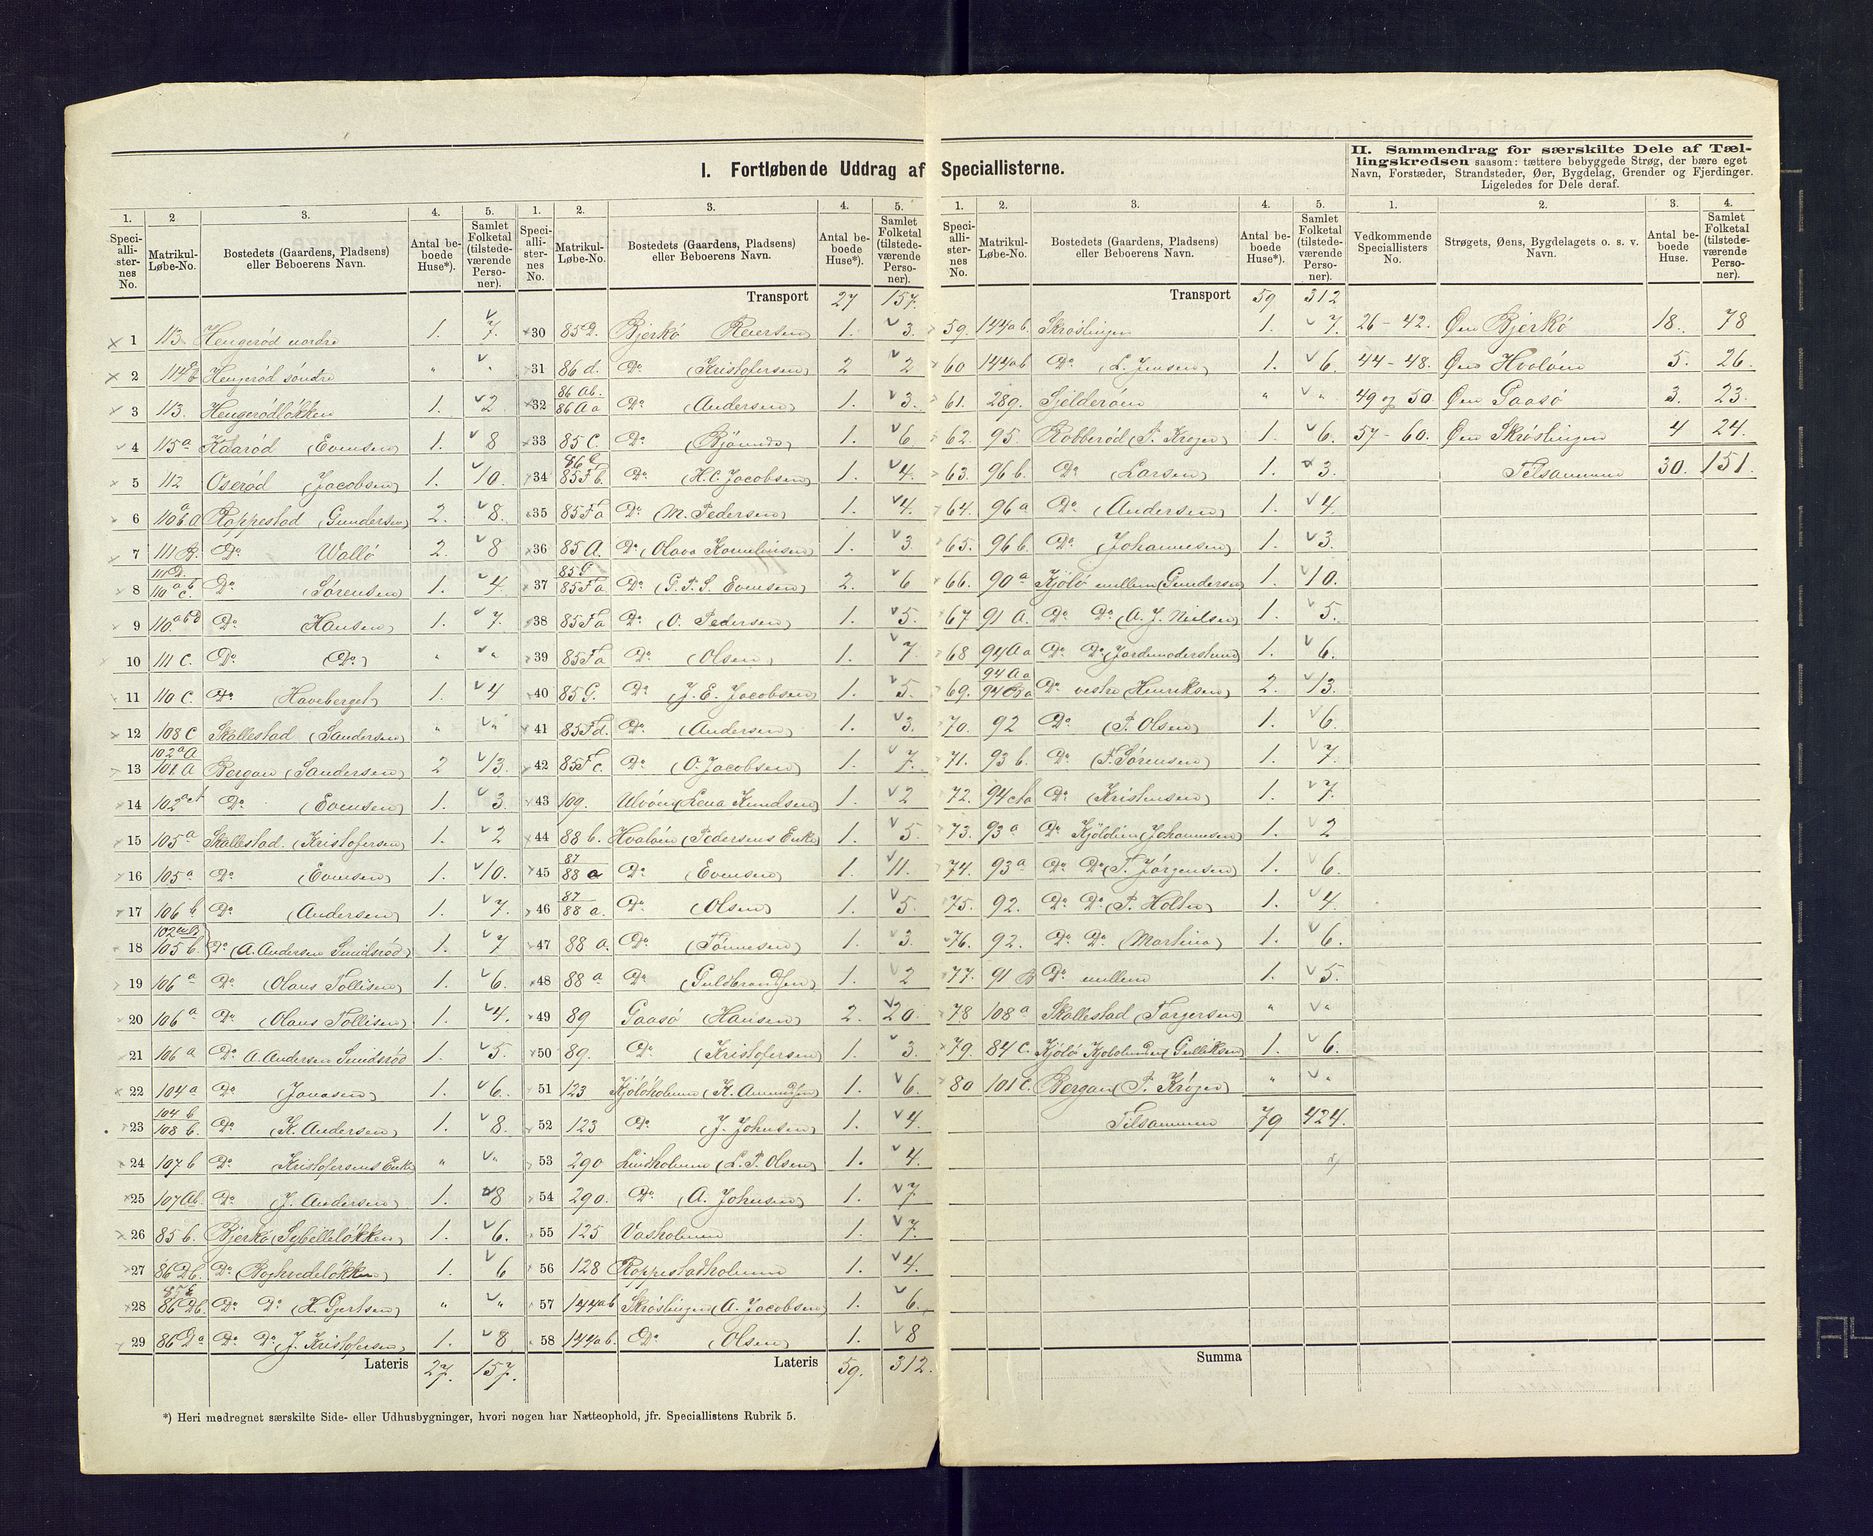 I. Fortløbende Uddrag af Speciallisterne.
II. Sammendrag for særskilte Dele af Tæl-
lingskredsen saasom: tættere bebyggede Strøg, der bære eget
Navn, Forstæder, Strandsteder, Øer, Bygdelag, Grender og Fjerdinger.
Ligeledes for Dele deraf.
1. 2. 3. 4. 5.
Speci-allli-ster-nes No. Matrikul-Løbe-No. Bostedets (Gaardens, Pladsens) eller Beboerens Navn. Antal be-boede Huse*). Samlet Folketal (tilstede-værende Perso-ner).
1 113 Hengerød nordre 1. 7.
2 Hengerød søndre " "
3 113. Hengerødløkken 1. 2
4 115a (Evensen) 1. 8
5 112 Oserød (Jacobsen) 1. 10.
6 Roppestad (Gundersen) 2. 8.
7 111 B. Do Vallø 2. 8
8 Do Sørensen) 1. 4
9 Do Hansen) 1. 7.
10 111 C. Do (Do) " "
11 110 C. Do Haveberget) 1. 4
12 108 C Skallestad (Sandersen) " "
13 102a A 101 A Bergan (Sandersen) 2 13.
14 Do (Evensen) 1. 3.
15 105a Skallestad. (Kristofersen) 1. 2
16 105a Do (Evensen) 1. 10.
17 106 b Do (Andersen) 1. 7.
18 105 b. Do (A. Andersen Sundsrød) 1. 7
19 106a Do (Olaus Tollisen) 1. 6.
20 106a Do (Olaus Tollisen) 1. 4.
21 106a Do A. Andersen Sundsrød 1. 5.
22 104a Do (Jonasen) 1. 6.
23 104 b 108 b. Do (K. Andersen) 1. 8.
24 107 b Do Kristofersens Enke " "
25 107 Ab. Do J. Andersen) 1. 8
26 85 b. Bjerkø (Sybilleløkken) 1. 6.
27 86 Db. Do (Boghvedeløkken) 1. 6
28 86 Db. Do Do (H. Gjertsen) " "
29 86 Da Do Do (J. Kristofersen) 1. 8
Lateris 27. 157.
1. 2. 3. 4. 5.
Speci-alli-ster-nes No. Matrikul-Løbe-No. Bostedets (Gaardens, Pladsens) eller Beboerens Navn. Antal be-boede Huse*). Samlet Folketal (tilstede-værende Perso-ner).
Transport 27 157.
30 85 D. Bjerkø Reiersen) 1. 3.
31 86 d. Do (Kristofersen) 2 2
32 86 Ab. 86 Aa Do (Andersen) 1. 3.
33 85 C. Do 1. 6
34 85 Fb. Do (H.C. Jacobsen) 1. 4
35 85 Fa Do (M. Pedersen) 1. 4.
36 85 A. Do (Olava Kornelinsen) 1. 3.
37 85 G 85 Fa Do (G. P. S. Evensen) 2. 6
38 85 Fa Do (O. Pedersen) 1. 5
39 85 Fa Do (Olsen) 1. 7.
40 85 G. Do (J. E. Jacobsen) 1. 5
41 85 Fd. Do (Andersen) 1. 3.
42 85 Fc. Do (O. Jacobsen) 1. 7.
43 109. Ulvøen (Lena Knudsen) 1. 2
44 88 b. Hvaløen (Pedersens Enke) 1. 5.
45 87 88 a Do (Evensen) 1. 11.
46 87 88 a. Do (Olsen) 1. 5.
47 88 a. Do (Tønnesen) 1. 3.
48 88 a Do (Guldbrandsen) 1. 2
49 89 Gaasø (Hansen) 2. 20.
50 89. Do (Kristofersen) 1. 3.
51 123 Kjøløholmen (K. Amundsen) 1. 6.
52 123 Do J. Johnsen) 1. 4.
53 290 Lindholmen (L. P. Olsen) 1. 4.
54 290. Do (A. Johnsen) 1. 7
55 125 Vasholmen 1. 7.
56 128 Roppestadholmen 1. 4.
57 144ab Skrøslingen (A. Jacobsen) 1. 6.
58 144ab. Do (Olsen) 1. 8
Lateris 59. 312.
1. 2. 3. 4. 5.
Speci-alli-ster-nes No. Matrikul-Løbe-No. Bostedets (Gaardens, Pladsens) eller Beboerens Navn. Antal be-boede Huse*). Samlet Folketal (tilstede-værende Perso-ner).
Transport 59 312
59. 144ab. Skrøslingen 1. 7.
60 144ab Do (L. Jensen) 1. 6.
61. 289. Fjelderøen " "
62. 95. Robberød (P. Krøger) 1. 6.
63. 96 b. Do (Larsen) 1. 3.
64. 96a Do (Andersen) 1. 4
65. 96 b. Do (Johannesen) 1. 3.
66. 90a Kjølø mellem (Gundersen) 1. 10.
67 91 A. Do Do (A. J. Nielsen) 1. 5.
68 94 Aa Do Do (Jordemoderstuen) 1. 6.
69. 94 Aa 94 Ba Do vestre (Henriksen) 2. 13.
70. 92 Do (P. Olsen) 1. 6.
71. 93 b. Do (F. Sørensen) 1. 7.
72. Do (Kristensen) 1. 7.
73. 93a Do (Johannesen) 1. 2
74. 93a Do Do (T. Jørgensen) 1. 6.
75. 92. Do Do (P. Holten) 1. 4.
76. 92. Do Do (Martina) 1. 6.
77. 91 B Do mellem 1. 5.
78 108a Skallestad (Torgersen) " "
79. 84 C. Kjølø (Gulliksen) 1. 6.
80 101 C. Bergan (P. Krøger) " "
Tilsammen 79 424.
Summa
1. 2. 3. 4.
Vedkommende Speciallisters No. Strøgets, Øens, Bygdelagets o. s. v. Navn. Antal be-boede Huse. Samlet Folketal (tilstede-værende Perso-ner).
26-42. Øen Bjerkø 18. 78
44-48. Øen Hvaløen 5. 26.
49 og 50. Øen Gaasø 3. 23.
57-60. Øen Skrøslingen 4 24.
Tilsammen 30. 151.
*) Heri medregnet særskilte Side- eller Udhusbygninger, hvori nogen har Natteophold, jfr. Speciallistens Rubrik 5.